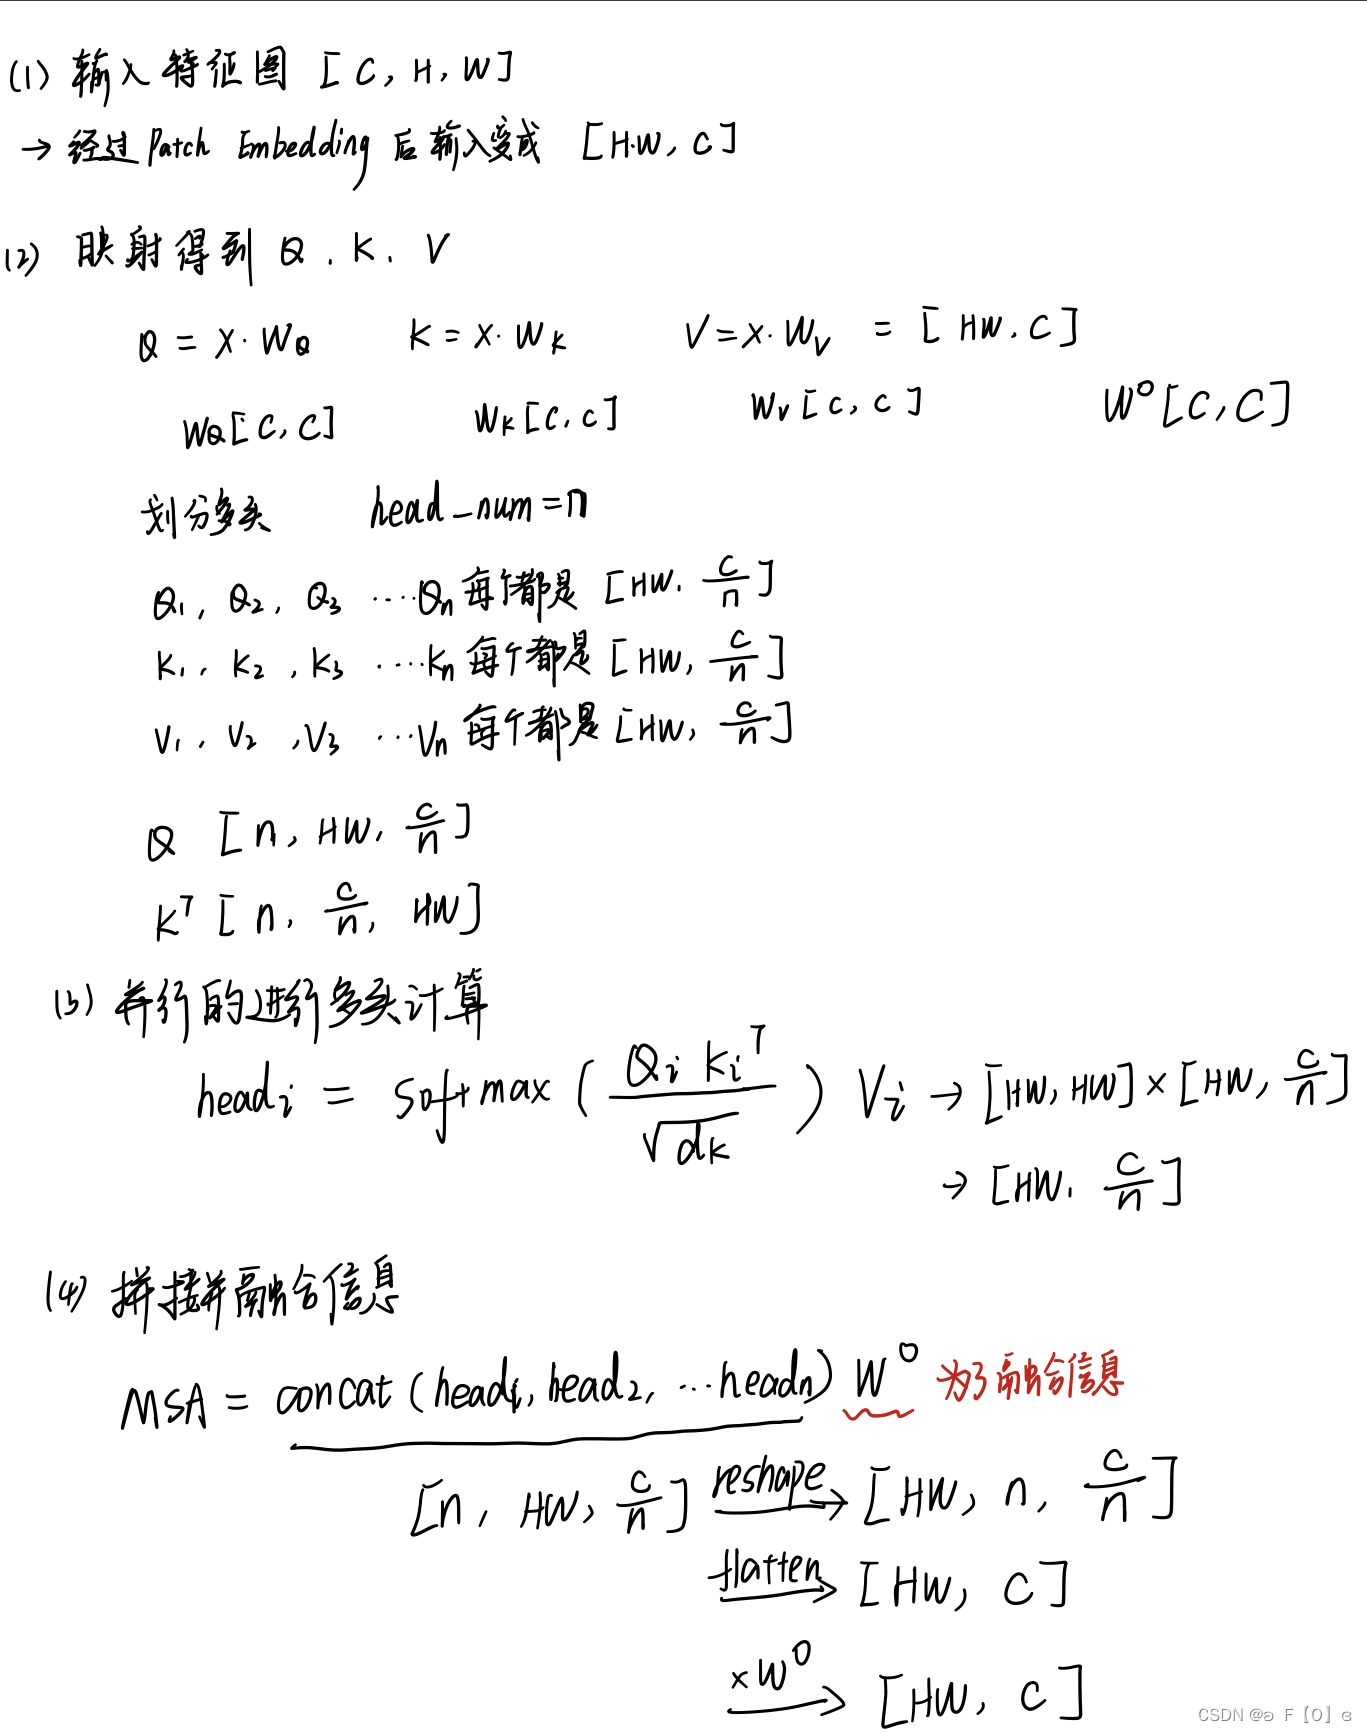 (1) 输入特征图 [C, H, W]
→ 经过 Patch Embedding 后输入变成 [H·W, C]
(2) 映射得到 Q. K. V
Q = X·W_Q K = X·W_K V = X·W_V = [HW, C]
W_Q[C, C] W_K[C, C] W_V[C, C] W^O[C, C]
划分多头 head_num=n
Q₁, Q₂, Q₃ ····Qₙ 每个都是 [HW, C/n]
K₁, K₂, K₃ ····Kₙ 每个都是 [HW, C/n]
V₁, V₂, V₃ ···Vₙ 每个都是 [HW, C/n]
Q [n, HW, C/n]
K^T [n, C/n, HW]
(3) 并行的进行多头计算
head_i = softmax(Q_i K_i^T / √d_K) V_i → [HW, HW] × [HW, C/n]
→ [HW, C/n]
(4) 拼接并融合信息
MSA = concat(head₁, head₂, ···headₙ) W^O 为了融合信息
[n, HW, C/n] reshape→ [HW, n, C/n]
flatten→ [HW, C]
×W^O→ [HW, C]